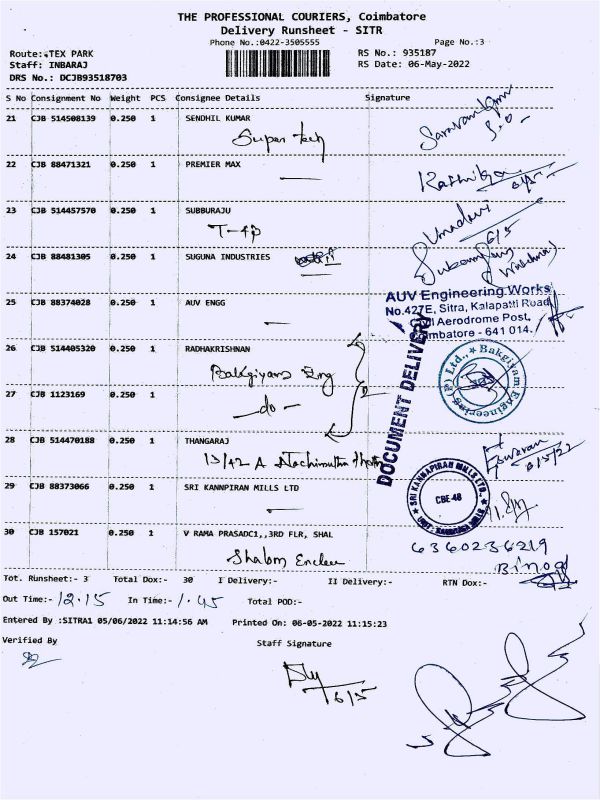 THE PROFESSIONAL COURIERS, Coimbatore
Delivery Runsheet - SITR
Phone No.:0422-3505555
Page No.:3
Route:-TEX PARK
RS No.: 935187
Staff: INBARAJ
RS Date: 06-May-2022
DRS No.: DCJB93518703
S No Consignment No Weight PCS Consignee Details Signature
21 CJB 514508139 0.250 1 SENDHIL KUMAR
Super tech
22 CJB 88471321 0.250 1 PREMIER MAX
23 CJB 514457570 0.250 1 SUBBURAJU
Umadevi
6/5
24 CJB 88481305 0.250 1 SUGUNA INDUSTRIES
25 CJB 88374028 0.250 1 AUV ENGG
AUV Engineering Works
No.427E, Sitra, Kalapatti Road,
Civil Aerodrome Post,
Coimbatore - 641 014.
DOCUMENT DELIVERY
26 CJB 514405320 0.250 1 RADHAKRISHNAN
Bakgiyam Eng
Bakgiyam Engineering (P) Ltd.,
27 CJB 1123169 0.250 1
- do -
28 CJB 514470188 0.250 1 THANGARAJ
13/42 A Nachimuthu
Eswaran
6/5/22
29 CJB 88373066 0.250 1 SRI KANNPIRAN MILLS LTD
SRI KANNAPIRAN MILLS LTD.
CBE-48
30 CJB 157021 0.250 1 V RAMA PRASADC1,,3RD FLR, SHAL
6360236219
Binod
Tot. Runsheet:- 3 Total Dox:- 30 I Delivery:- II Delivery:- RTN Dox:-
Out Time:- 12.15 In Time:- 1.45 Total POD:-
Entered By :SITRA1 05/06/2022 11:14:56 AM Printed On: 06-05-2022 11:15:23
Verified By
Staff Signature
6/5